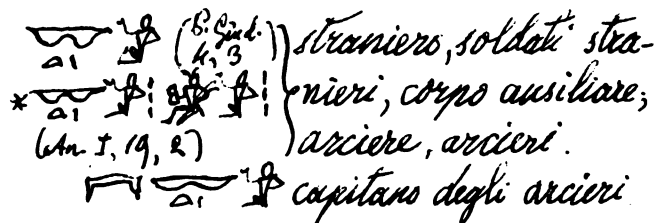 (P. Giud. 4, 3) straniero, soldati stra-
nieri, corpo ausiliare;
(An. I, 19, 2) arciere, arcieri.
capitano degli arcieri